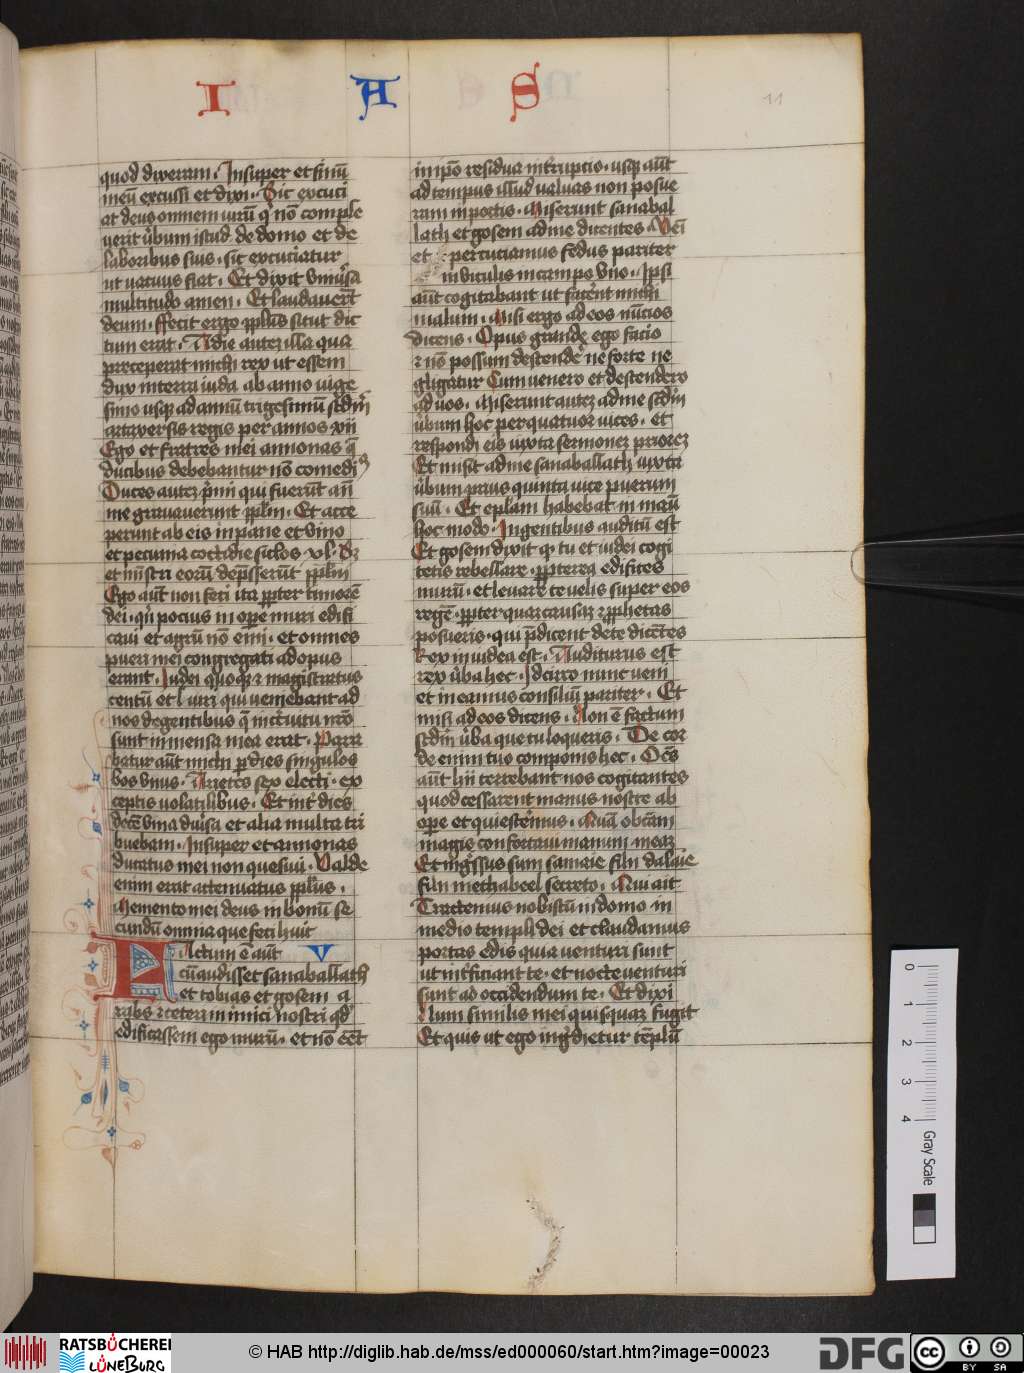 I A S
11
quod dixeram. Insuper et sinū
meū excussi et dixi. Sic excuci
at deus omnem virū qͥ nō comple
verit v̉bum istud de domo et de
laboribus suis. sic excuciatur
ut vacuus fiat. Et dixit vniuͥsa
multitudo amen. Et laudauer̄t
deum. ffecit ergo pplūs sicut dic
tum erat. A die autez illa qua
preceperat michi rex ut essem
dux in terra iuda ab anno vige
simo usqz ad annū trigesimū scd̄m
artaxersis regis per annos xii
Ego et fratres mei annonas q̄
ducibus debebantur nō comedi⁹
Duces autez p̄mi qui fuerūt an̄
me grauauerunt pplm̄. Et acce
perunt ab eis in pane et vino
et pecunia cottidie siclos xl. Sz
et mīstri eorū dep̄sserūt pplm̄
Ego aūt non feci ita ppter timorē
dei. qn̄ pocius in oꝑe muri edifi
caui et agrū nō emi. et omnes
pueri mei congregati ad opus
erant. Iudei quoqz et magistratus
centū et l viri qui veniebant ad
nos de gentibus q̄ in circuitu nr̄o
sunt in mensa mea erāt. Para
batur aūt michi ꝑ dies singulos
bos vnus. Arietes sex electi. ex
ceptis volatilibus. Et int̉ dies
decē vina diuͥsa et alia multa tri
buebam. Insuper et annonas
ducatus mei non quesiui. Valde
enim erat attenuatus pplūs.
Memento mei deus in bonū se
cundū omnia que feci huic
Factum ē aūt V
cū audisset sanaballath
et tobias et gosem a
rabs et ceteri inimici nostri qd̓
edificassem ego murū. et nō eēt
in ip̄o residua int̉rupcio. usqz aūt
ad tempus illud valuas non posue
ram in portis. Miserunt sanabal
lath et gosem ad me dicentes. Veni
et percuciamus fedus pariter
in viculis in campo vno. Ipsi
aūt cogitabant ut facer̄nt michi
malum. Misi ergo ad eos nūcios
dicens. Opus grande ego facio
et nō possum descende͛ ne forte ne
gligatur Cum venero et descendero
ad vos. Miserunt autez ad me scd̄m
v̉bum hoc per quatuor vices. et
respondi eis iuxta sermonez priorez
Et misit ad me sanaballath iuxta
v̉bum prius quinta vice puerum
suū. Et epl̄am habebat in manū
hoc modo. In gentibus auditū est
Et gosem dixit qͥ tu et iudei cogi
tetis rebellare. ppterea edifices
murū. et leuare te velis super eos
regē. ppter quaz causaz et pphetas
posueris. qui p̄dicent de te dicētes
Rex in iudea est. Auditurus est
rex v̉ba hec. Idcirco nunc veni
et ineamus consiliū pariter. Et
misi ad eos dicens. Non ē factum
scd̄m v̉ba que tu loqueris. De cor
de enim tuo componis hec. Om̄s
aūt hii terrebant nos cogitantes
quod cessarent manus nostre ab
oꝑe et quiescer̄mus. Quā ob cām
magis confortaui manum meaz
Et ing͛ssus sum samaie filii dalaie
filii methabeel secreto. Qui ait
Tractemus nobiscū in domo in
medio templi dei et claudamus
portas edis quia venturi sunt
ut int̉ficiant te. et nocte venturi
sunt ad occidendum te. Et dixi
Num similis mei quisquaz fugit
Et quis ut ego ing͛dietur tēplū
0 1 2 3 4
Gray Scale
RATSBÜCHEREI
LÜNEBURG
© HAB http://diglib.hab.de/mss/ed000060/start.htm?image=00023
DFG
cc BY SA